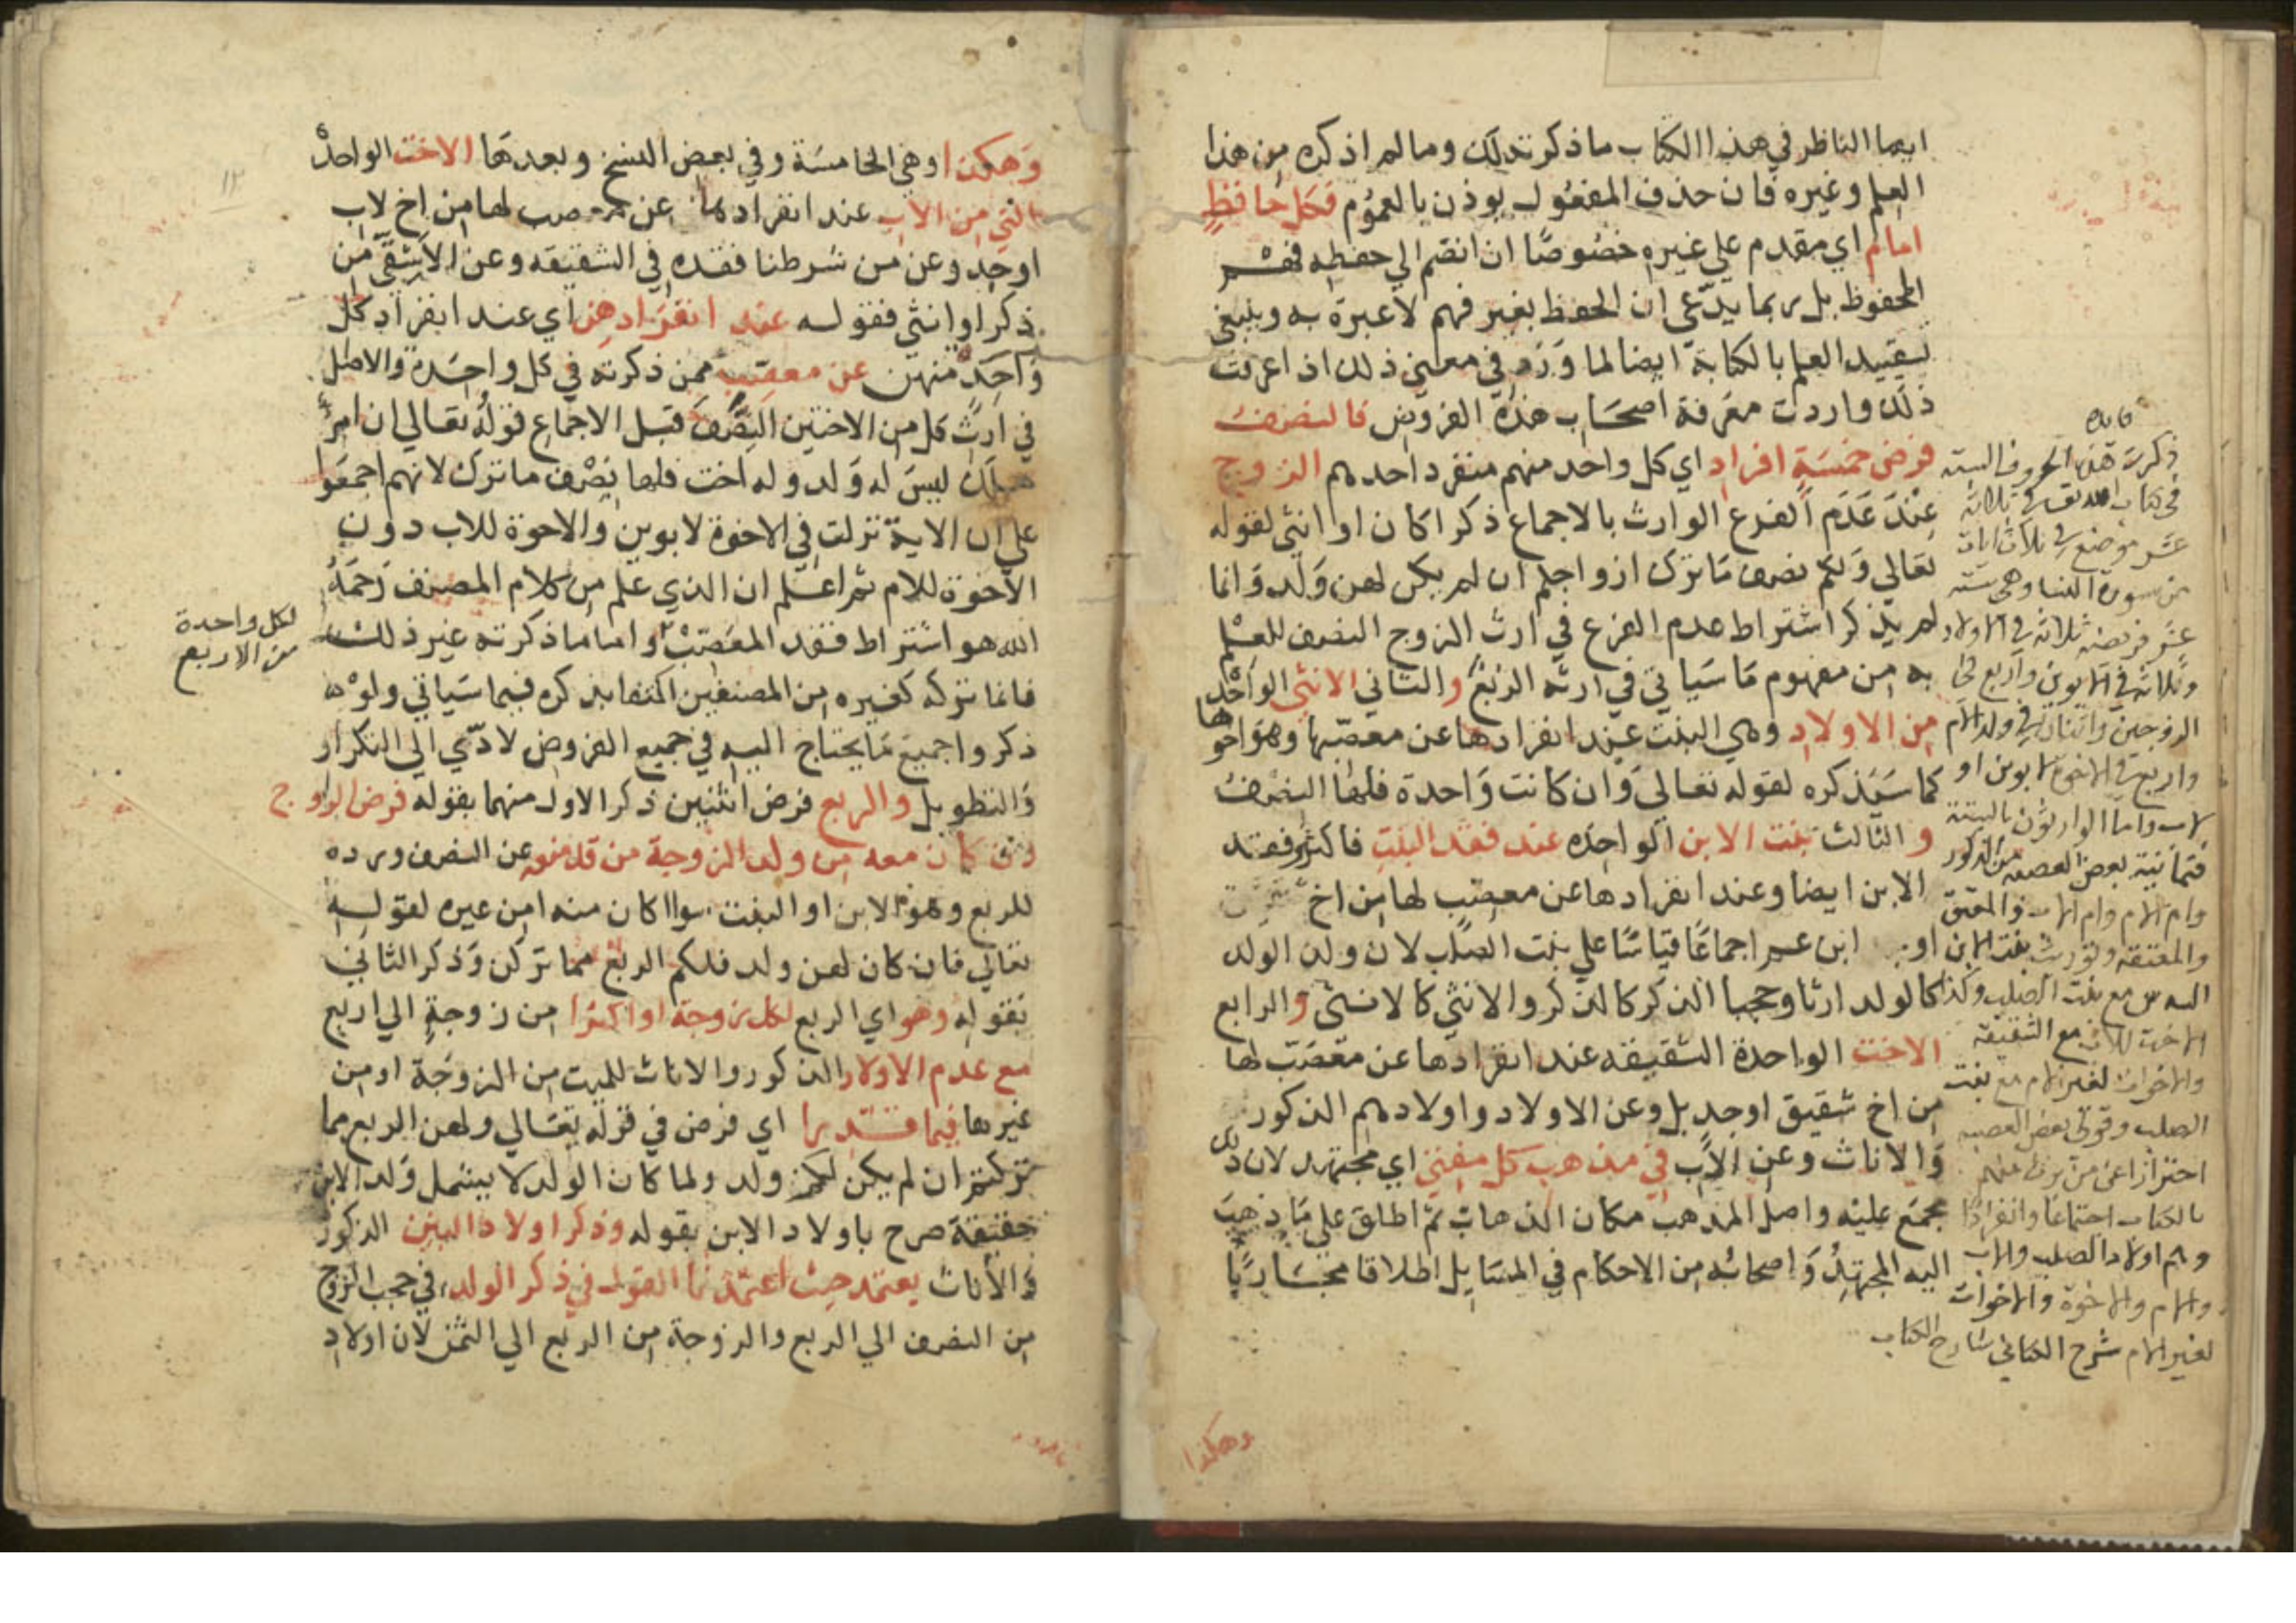 ايها الناظر في هذا الكتاب ما ذكرته لك وما لم اذكره من هذا
العلم وغيره فان حذف المفعول يوذن بالعموم فكل حافظ
امام اي مقدم علي غيره خصوصا ان انضم الي حفظه فهم
المحفوظ بل ربما يدعي ان الحفظ بغير فهم لا عبرة به وينبغي
تقييد العلم بالكتابة ايضا لما ورد في معني ذلك اذا عرفت
ذلك واردت معرفة اصحاب هذه الفروض فالنصف
فرض خمسة افراد اي كل واحد منهم منفرد احدهم الزوج
عند عدم الفرع الوارث بالاجماع ذكرا كان او انثي لقوله
تعالي ولكم نصف ما ترك ازواجكم ان لم يكن لهن ولد وانما
لم يذكر اشتراط عدم الفرع في ارث الزوج النصف للعلم
به من مفهوم ما سياتي في ارثه الربع والثاني الانثي الواحدة
من الاولاد وهي البنت عند انفرادها عن معصبها وهو اخوها
كما سيذكره لقوله تعالي وان كانت واحدة فلها النصف
و الثالث بنت الابن الواحده عند فقد البنت فاكثر وفقد
الابن ايضا وعند انفرادها عن معصب لها من اخ
او ابن عم اجماعا قياسا علي بنت الصلب لان ولد الولد
كالولد ارثا وحجبا الذكر كالذكر والانثي كالانثي والرابع
الاخت الواحدة الشقيقه عند انفرادها عن معصب لها
من اخ شقيق او جد بل وعن الاولاد واولادهم الذكور
والاناث وعن الاب في مذهب كل مفتي اي مجتهد لان ذلك
مجمع عليه واصل المذهب مكان الذهاب ثم اطلق علي ما ذهب
اليه المجتهد واصحابه من الاحكام في المسايل اطلاقا مجازيا
وهكذا
ذكرت هذه الحروف الستة
في كتاب الله تعالي في ثلاثة
عشر موضع في ثلاث ايات
من سورة النسا وهي ستة
عشر فريضه ثلاثة في الاولاد
وثلاثة في الابوين واربع في
الزوجين واثنان في ولد الام
واربع في الاخوة لابوين او
لاب واما الوارثون بالسنة
فثمانية بعض العصبه من الذكور
وام الام وام الاب والمعتق
والمعتقة وتوريث بنت الابن
السدس مع بنت الصلب وكذا
الاخت للاب مع الشقيقة
والاخوات لغير الام مع بنت
الصلب وقولي بعض العصبه
احترازا عن من يرث منهم
بالكتاب اجتماعا وانفرادا
وهم اولاد الصلب والاب
والام والاخوة والاخوات
لغير الام شرح الكتاب
وهكذا وهي الخامسة وفي بعض النسخ وبعدها الاخت الواحدة
التي من الاب عند انفرادها عن معصب لها من اخ لاب
او جد وعن من شرطنا فقده في الشقيقه وعن الاشقي من
ذكر او انثي فقوله عند انفرادهن اي عند انفراد كل
واحدة منهن عن معصب ممن ذكرته في كل واحدة والاصل
في ارث كل من الاختين النصف قبل الاجماع قوله تعالي ان امرؤ
هلك ليس له ولد وله اخت فلها نصف ما ترك لانهم اجمعوا
علي ان الاية نزلت في الاخوة لابوين والاخوة للاب دون
الاخوة للام ثم اعلم ان الذي علم من كلام المصنف رحمه
الله هو اشتراط فقد المعصب واما ما ذكرته غير ذلك
فانما تركه كغيره من المصنفين اكتفا بذكره فيما سياتي ولو
ذكروا جميع ما يحتاج اليه في جميع الفروض لادي الي التكرار
والتطويل والربع فرض اثنين ذكر الاول منهما بقوله فرض الزوج
ان كان معه من ولد الزوجة من قد منعه عن النصف ورده
للربع وهو الابن او البنت سوا كان منه او من غيره لقوله
تعالي فان كان لهن ولد فلكم الربع مما تركن وذكر الثاني
بقوله وهو اي الربع لكل زوجة او اكثرا من زوجة الي اربع
مع عدم الاولاد الذكور والاناث للميت من الزوجة او من
غيرها فيما قدرا اي فرض في قوله تعالي ولهن الربع مما
تركتم ان لم يكن لكم ولد ولما كان الولد لا يشمل ولد الابن
حقيقة صرح باولاد الابن بقوله وذكر اولاد البنين الذكور
والاناث يعتمد حيث اعتمدنا القول في ذكر الولد في حجب الزوج
من النصف الي الربع والزوجة من الربع الي الثمن لان اولاد
لكل واحدة
من الاربع
١٢